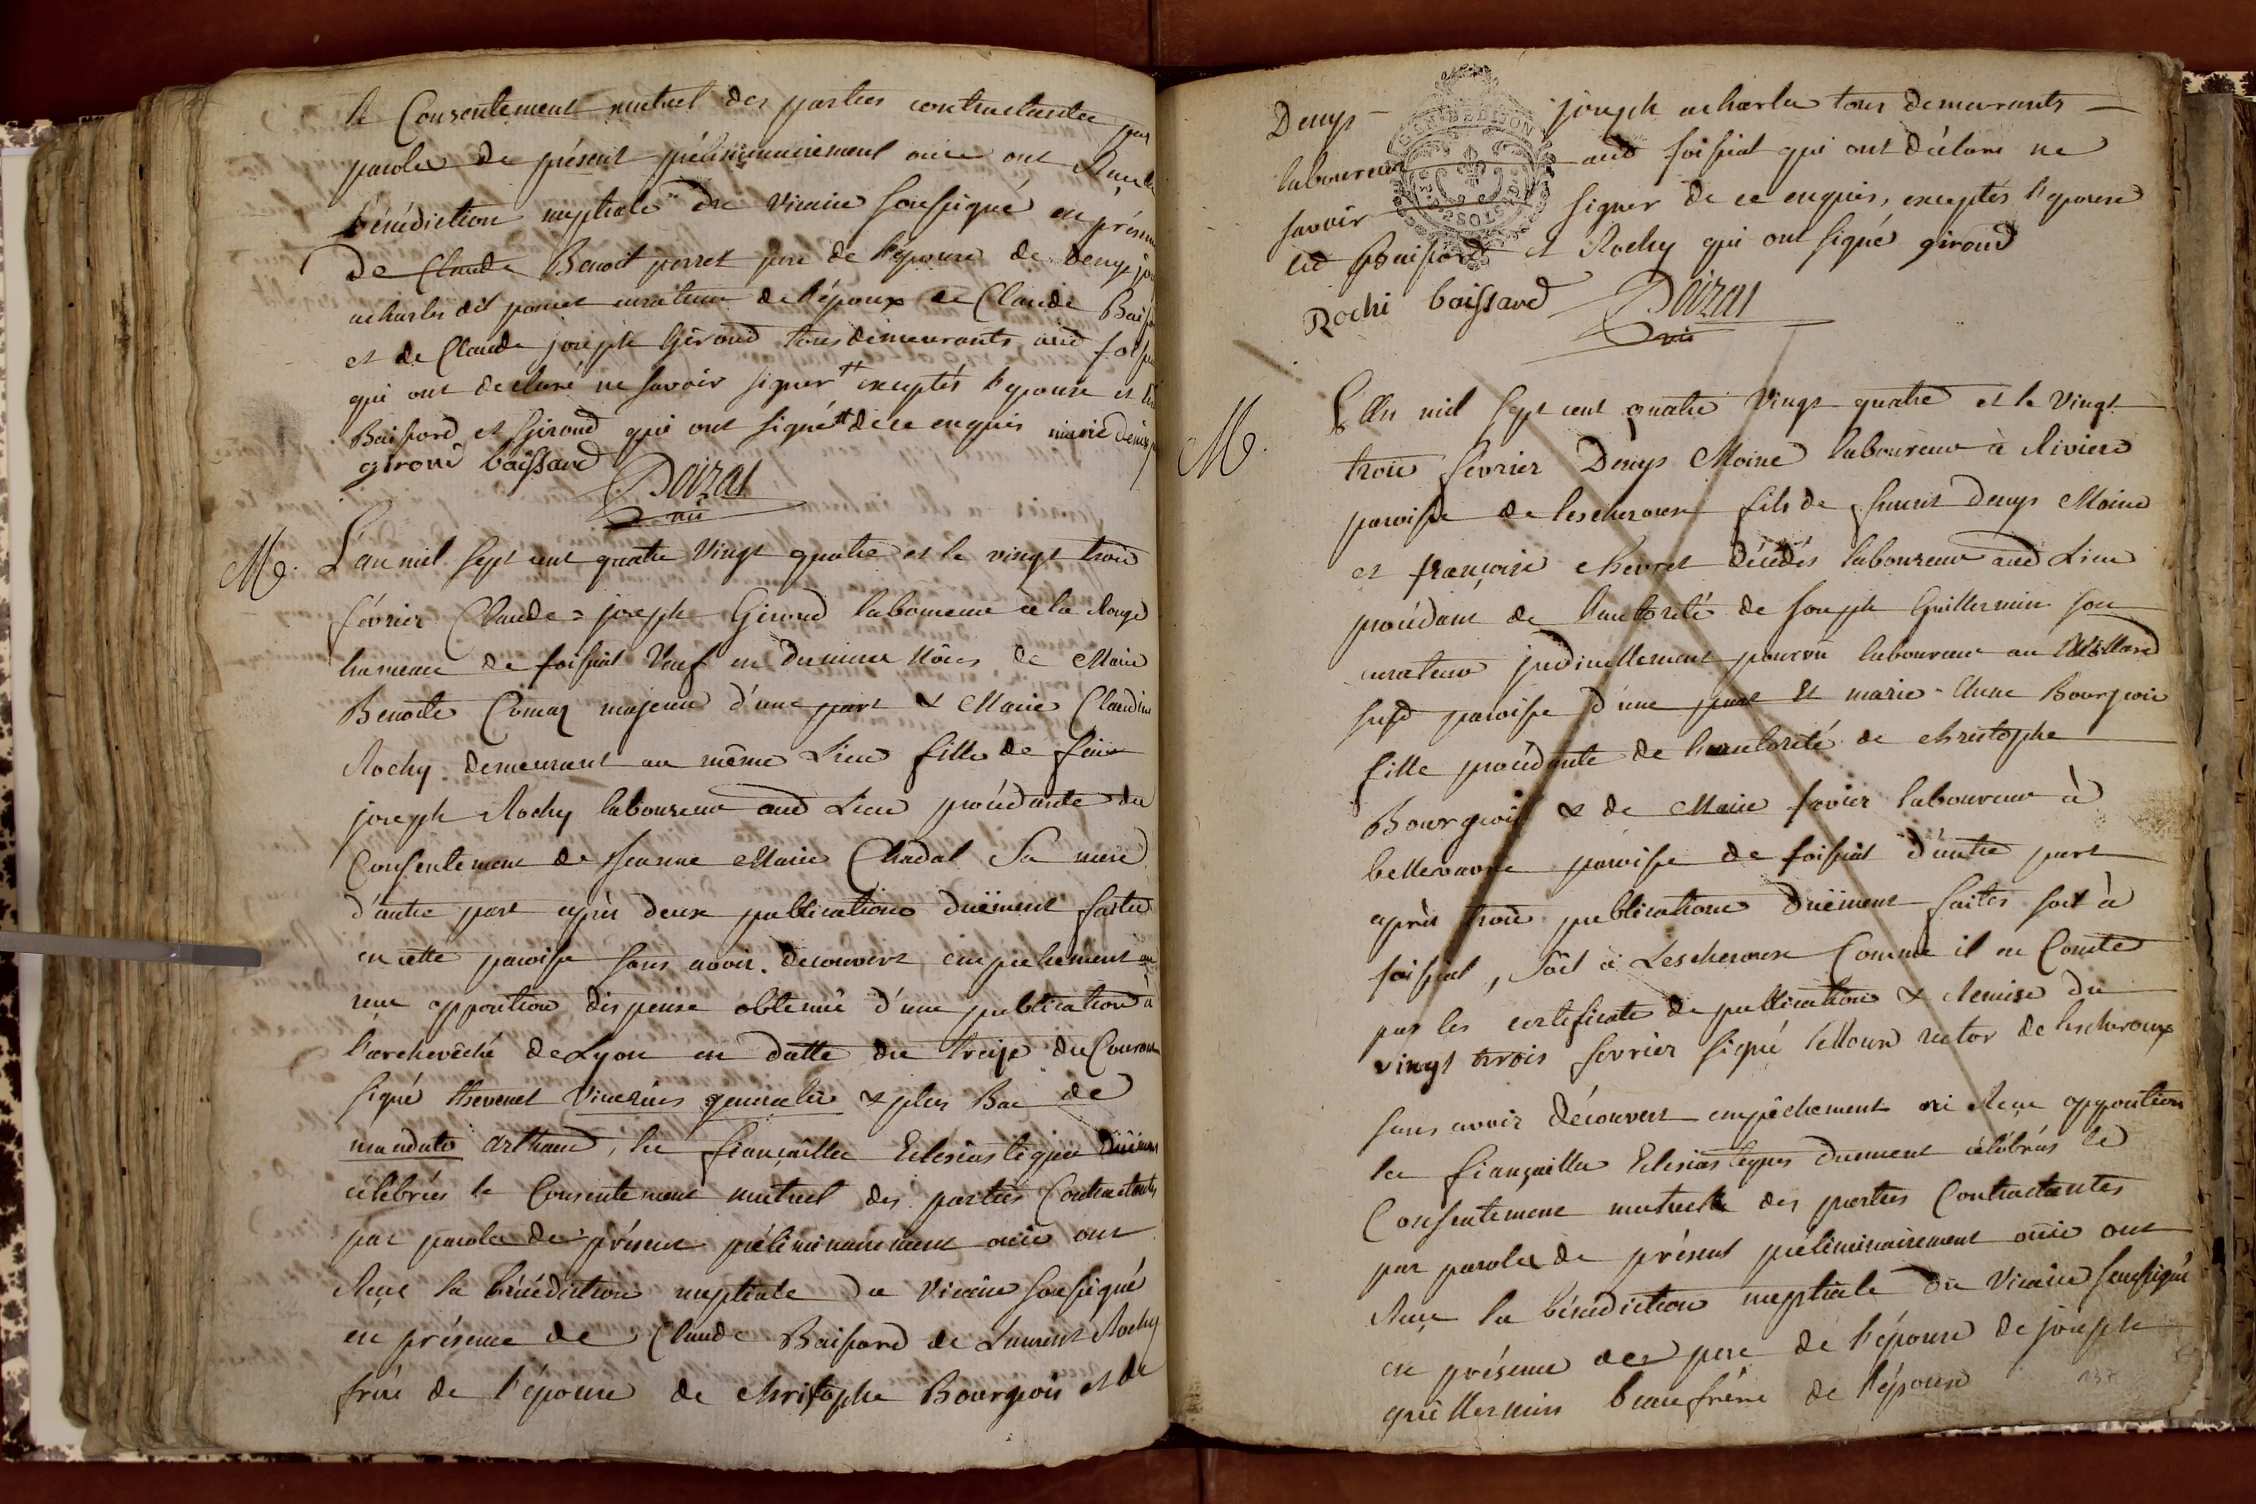 le Consentement mutuel des parties contractantes par
paroles de présent préliminairement ouie ont Reçu la
bénédiction nuptiale du Vicaire soussigné en présence
De Claude Benoit perret pere de l'épouse de Denys jos
acharles dit ponet curateur de l'époux de Claude Baiss
et de Claude joseph Giroud tous demeurants aud foissia
qui ont declaré ne savoir signer ++ exceptés l'epouse et
Baissard et Giroud qui ont signé ++ de ce enquis marie denise
giroud boissard
Doizat
vic
M. L'an mil sept cent quatre vingt quatre et le vingt trois
février Claude = joseph Giroud laboureur à la Rouge
hameau de foissiat Veuf en dernieres Nôces de Marie
Benoite Comaz majeur d'une part & Marie Claudine
Rochy demeurant au même Lieu fille de feu
joseph Rochy laboureur aud Lieu procédante du
Consentement de Jeanne Marie Chadal Sa mere
d'autre part après deux publications düement faites
en cette paroisse sans avoir decouvert empechement ou
reçu opposition dispense obtenuë d'une publication à
l'archevêché de Lyon en datte du treize du Courant
signé thevenet Vicarius generalis & plus Bas de
mandato arthaud, les fiançailles Eclesiastiques düement
célébrées le Consentement mutuel des parties Contractantes
par paroles de présent préliminairement ouie ont
Reçu la bénédiction nuptiale du Vicaire soussigné
en présence de Claude Baissard de Laurent Rochy
frere de l'épouse de christophe Bourgeois et de
Denys - joseph acharles tous demeurants -
laboureur aud foissiat qui ont déclaré ne
savoir signer de ce enquis, exceptés l'epouse
led Baissard et Rochy qui ont signé giroud
Rochi boissard Doizat
vic
GEN. DE DIJON
M. L'An mil sept cent quatre Vingt quatre et le Vingt
trois fevrier Denys Moine laboureur à Riviere
paroisse de lescheroux fils de defunt Denys Moine
et françoise chevret décédés laboureur aud Lieu
procédant de l'authorité de Joseph Guillermin son
curateur judiciellement pourvu laboureur au Villard
susd paroisse d'une part Et marie-Anne Bourgeois
fille procédante de l'authorité de christophe
Bourgeois & de Marie favier laboureur à
bellevavre paroisse de foissiat d'autre part
après trois publications düement faites soit à
foissiat, soit à Lescheroux Comme il en Conste
par les certificats de publications & Remise du
vingt trois fevrier signé rector de lescheroux
sans avoir découvert empêchement ni Reçu opposition
les fiançailles Eclesiastiques duement célébrées le
Consentement mutuelle des parties Contractantes
par paroles de présent préliminairement ouie ont
Reçu la bénédiction nuptiale du Vicaire soussigné
en présence des pere de l'épouse de joseph
guillermin beaufrère de l'époux
137